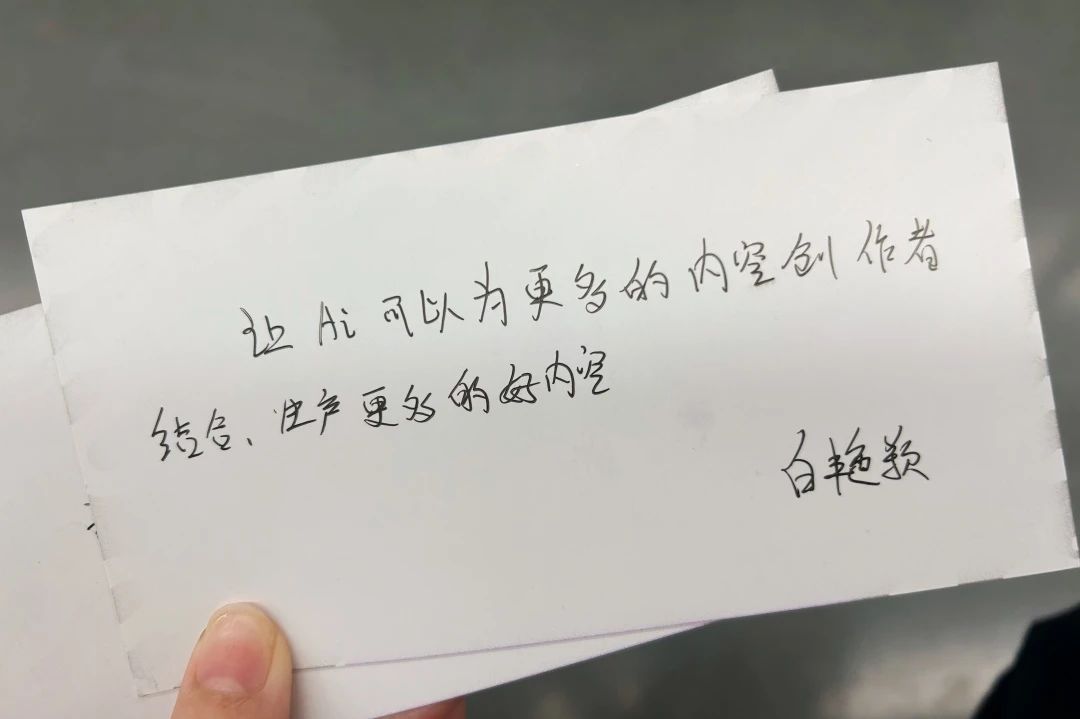 让 Ai 可以为更多的内容创作者
结合、生产更多的好内容
白艳颖